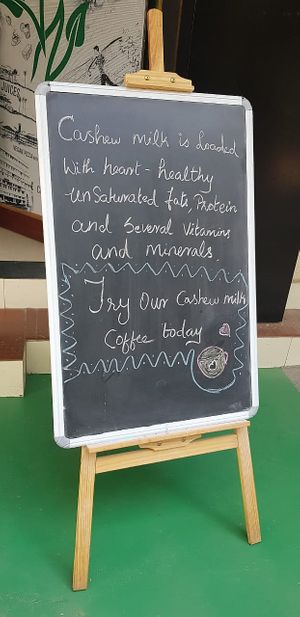 Cashew milk is loaded
With heart-healthy
unSaturated fats, Protein
and Several Vitamins
and minerals.
Try Our Cashew milk
Coffee today
JUICES